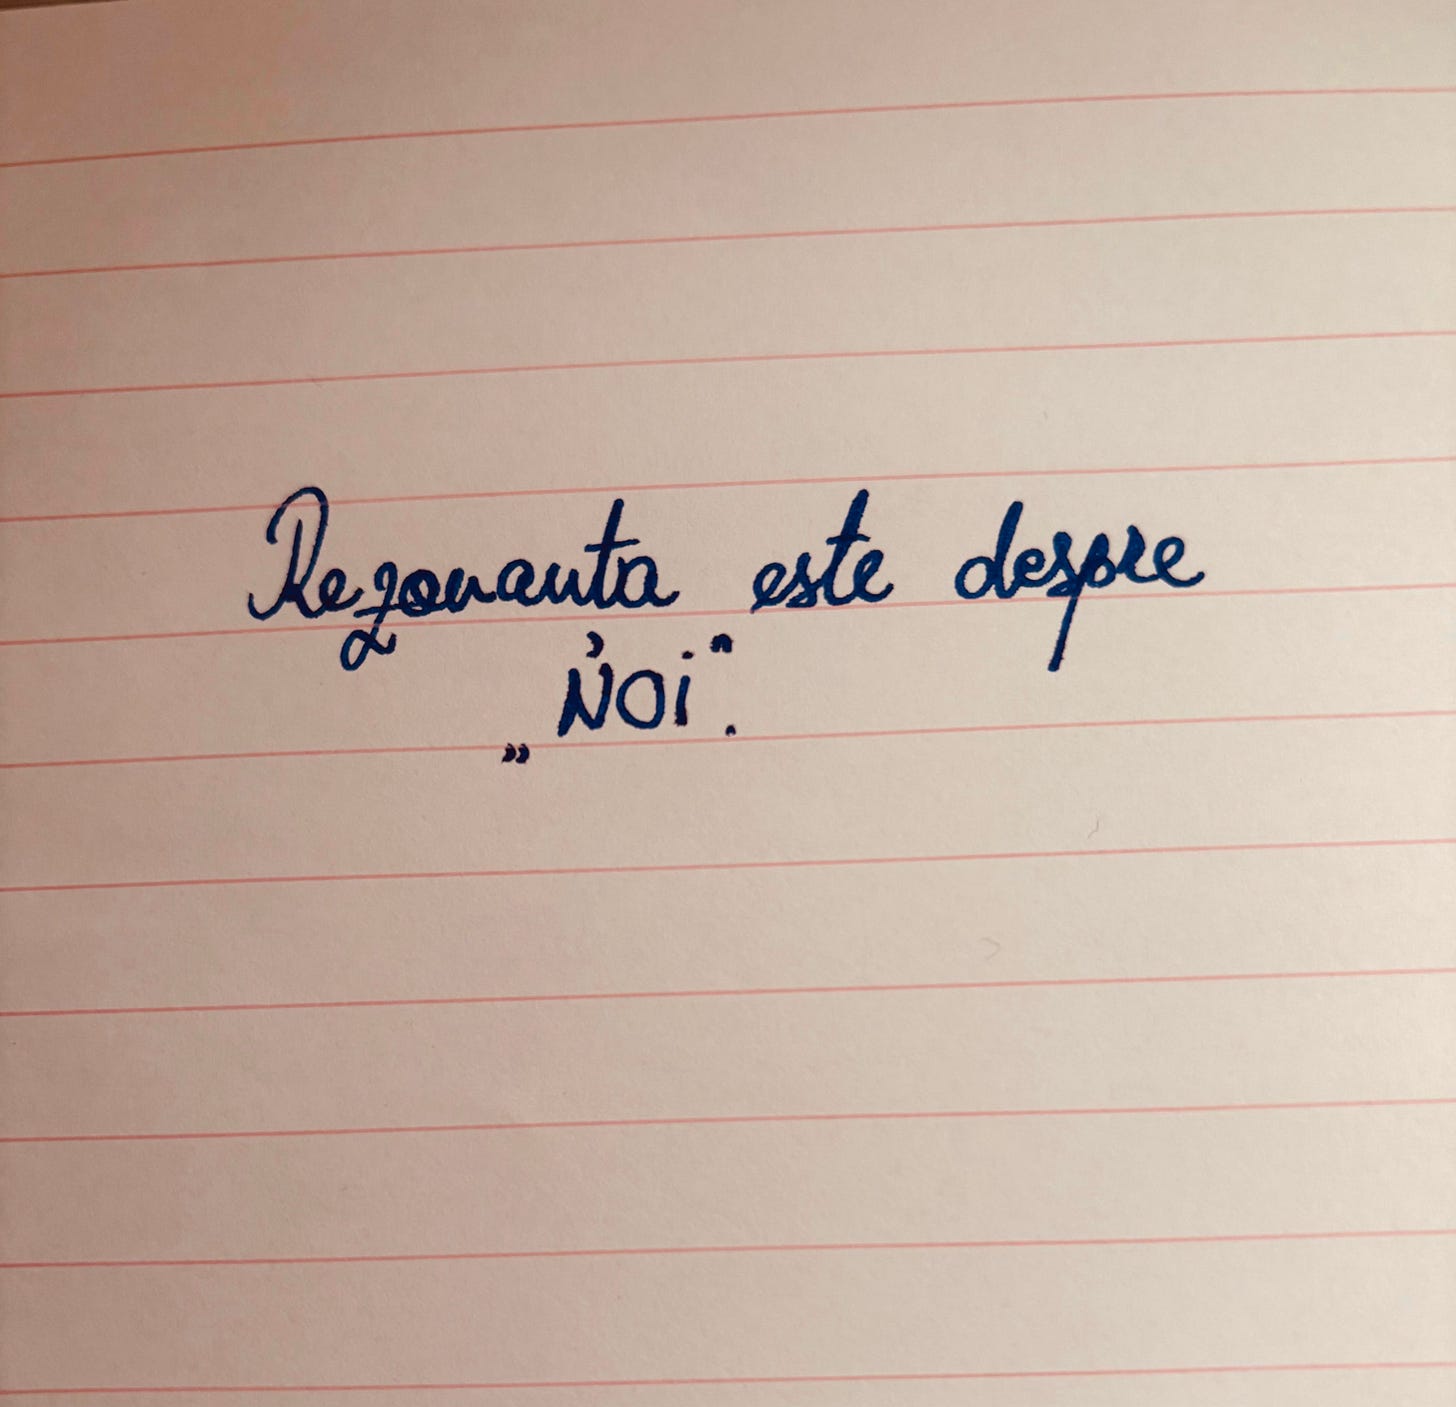 Rezonanta este despre
„NOI“.